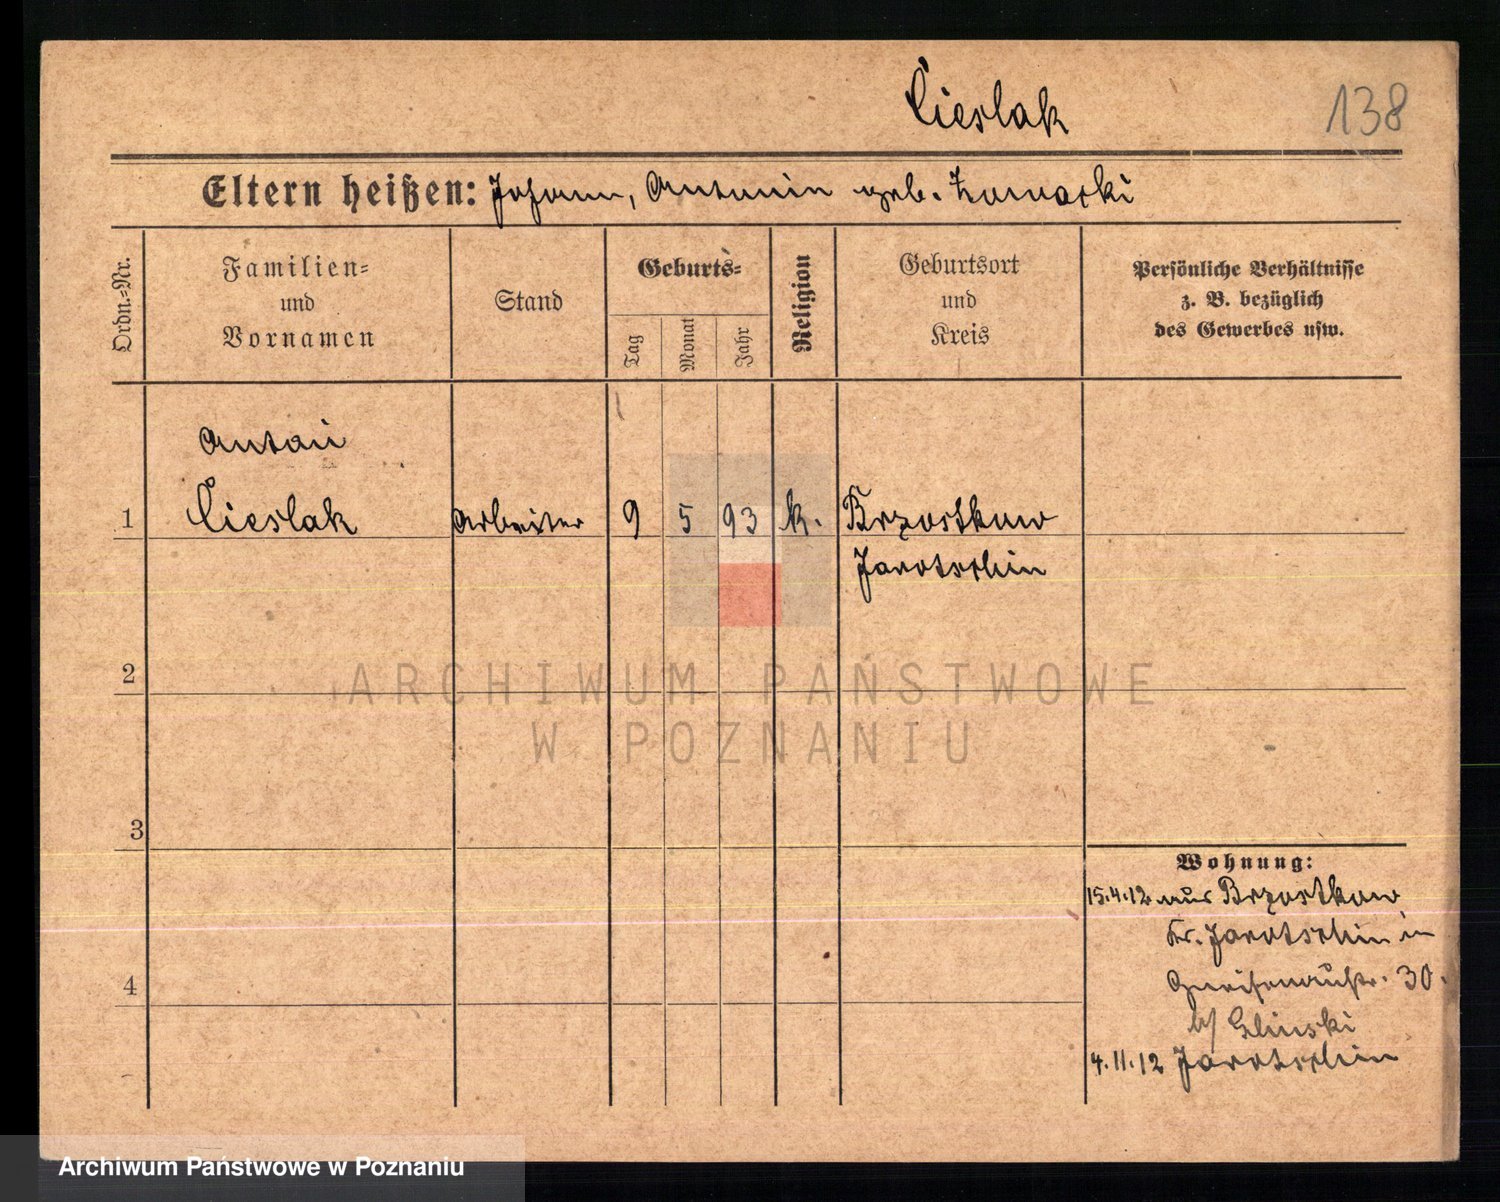 Cieslak
138
Eltern heißen: Johann, Antonin geb. Zawacki
Ordn.-Nr.
Familien-
und
Vornamen
Stand
Geburts-
Tag
Monat
Jahr
Religion
Geburtsort
und
Kreis
Persönliche Verhältnisse
z. B. bezüglich
des Gewerbes usw.
Anton
1 Cieslak Arbeiter 9 5 93 k. Brzostkow
Jarotschin
2
ARCHIWUM PAŃSTWOWE
W POZNANIU
3
Wohnung:
15.4.12 aus Brzostkow
Kr. Jarotschin in
4
Gneisenaustr. 30.
b/ Glinski
4.11.12 Jarotschin
Archiwum Państwowe w Poznaniu